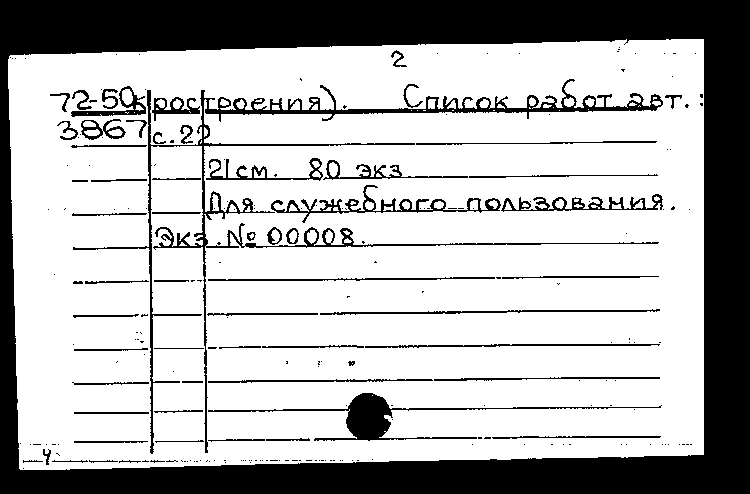 2
72-50кростроения). Список работ авт.:
3867 с.22
21см. 80 экз
Для служебного пользования.
Экз. № 00008.
4